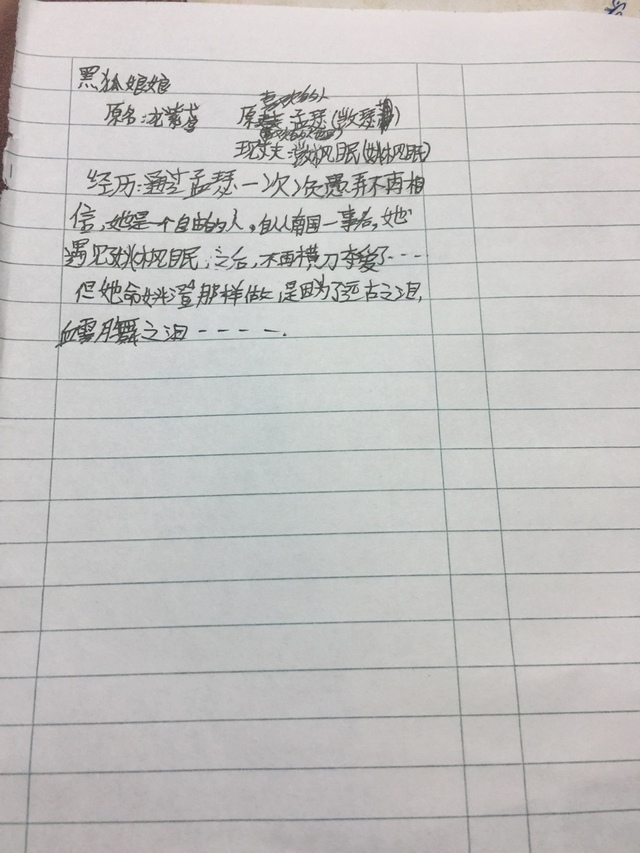 黑狐娘娘
喜欢的人
原名:龙紫 原 孟瑟(散瑟)
现丈夫:枫眠(姚枫眠)
经历:通过孟瑟一次次愚弄不再相
信,她是一个自由的人。自从南国一事后,她
遇见姚枫眠,之后,不再横刀夺爱了---
但她命姚澄那样做,是因为了亘古之泪,
血雪月舞之泪-----.